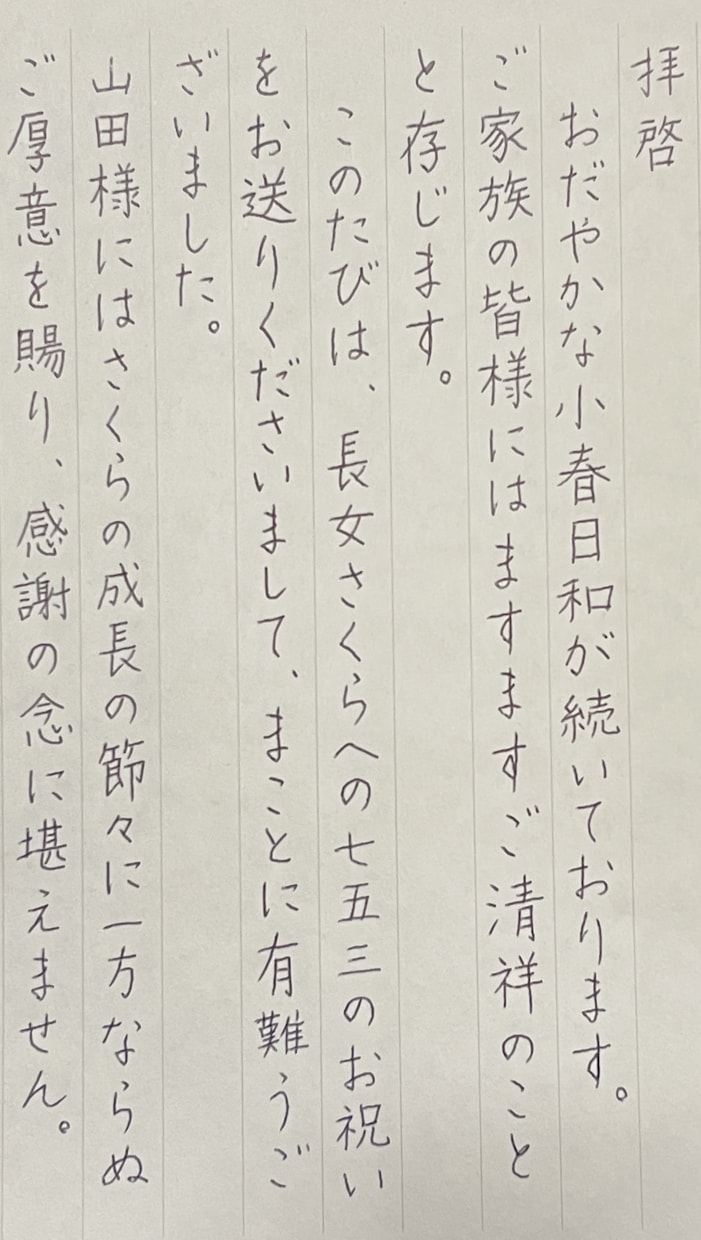 拝啓
おだやかな小春日和が続いております。
ご家族の皆様にはますますご清祥のこと
と存じます。
このたびは、長女さくらへの七五三のお祝い
をお送りくださいまして、まことに有難うご
ざいました。
山田様にはさくらの成長の節々に一方ならぬ
ご厚意を賜り、感謝の念に堪えません。